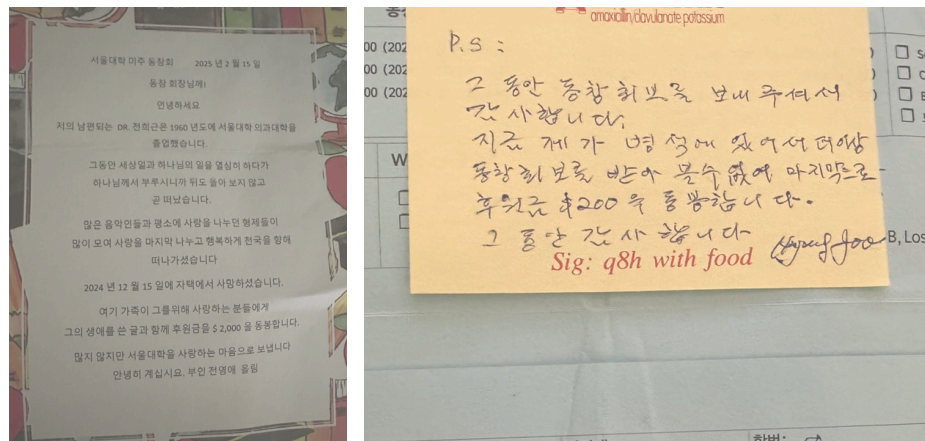 서울대학 미주 동창회 2025 년 2 월 15 일
동창 회장님께!
안녕하세요
저의 남편되는 DR. 전희근은 1960 년도에 서울대학 의과대학을
졸업했습니다.
그동안 세상일과 하나님의 일을 열심히 하다가
하나님께서 부루시니까 뒤도 돌아 보지 않고
곧 떠났습니다.
많은 음악인들과 평소에 사랑을 나누던 형제들이
많이 모여 사랑을 마지막 나누고 행복하게 천국을 향해
떠나가셨습니다
2024 년 12 월 15 일에 자택에서 사망하셨습니다.
여기 가족이 그를위해 사랑하는 분들에게
그의 생애를 쓴 글과 함께 후원금을 $ 2,000 을 동봉합니다.
많지 않지만 서울대학을 사랑하는 마음으로 보냅니다
안녕히 계십시요. 부인 전영애 올림
amoxicillin/clavulanate potassium
P.S :
그 동안 동창회보를 보내 주셔서
감사합니다.
지금 제가 병석에 있어서 더이상
동창회보를 받아 볼수 없어 마지막으로
후원금 $200 을 동봉합니다.
그 동안 감사합니다
Sig: q8h with food
00 (202
00 (202
00 (202
W
B, Los
학번: